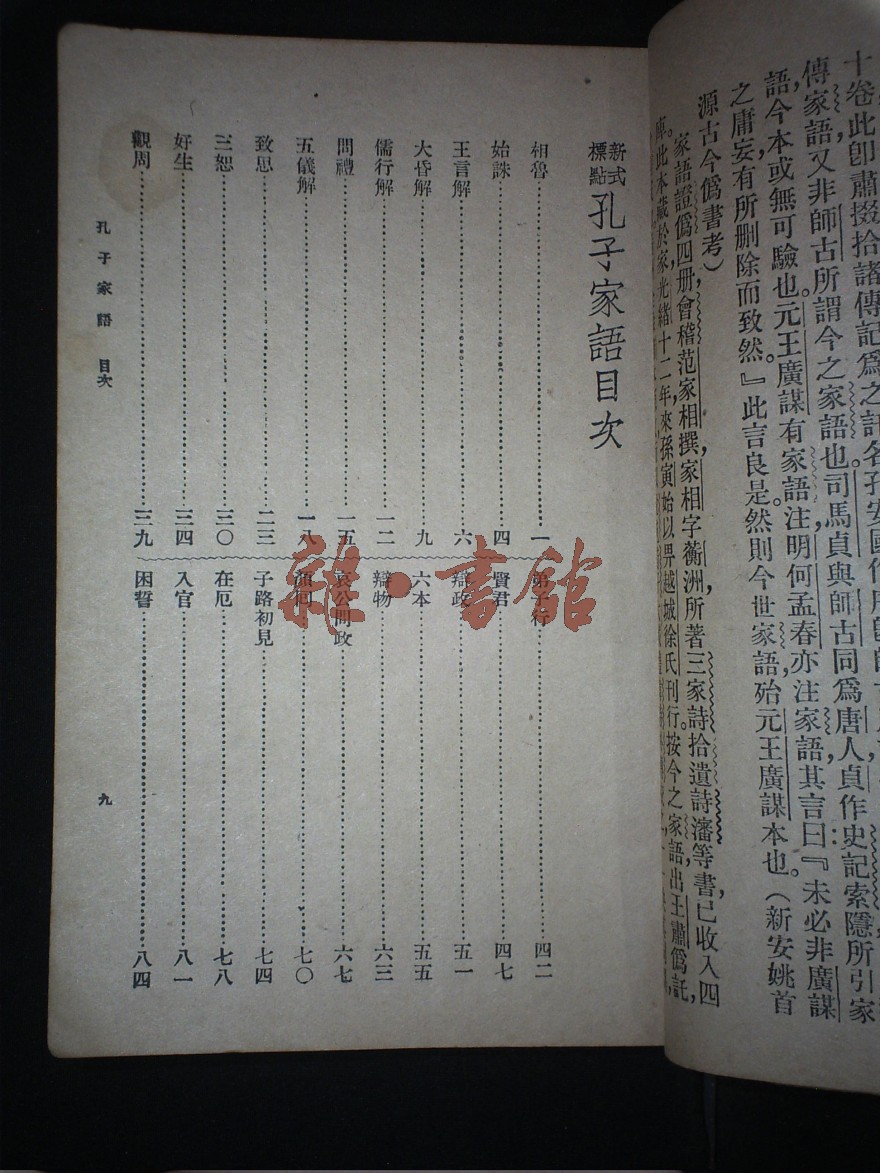 十卷此卽肅掇拾諸傳記爲之託名孔安國作
傳家語又非師古所謂今之家語也。司馬貞與師古同爲唐人貞作史記索隱所引家
語，今本或無可驗也。元王廣謀有家語注，明何孟春亦注家語其言曰：『未必非廣謀
之庸妄，有所删除而致然。』此言良是然則今世家語殆元王廣謀本也。（新安姚首
源古今僞書考）
家語證僞四册會稽范家相撰家相字蘅洲所著三家詩拾遺詩瀋等書已收入四
庫。此本藏於家，光緒十二年，來孫寅始以畀越城徐氏刊行。按今之家語出王肅僞託，
新式標點 孔子家語目次
相魯 一
始誅 四
王言解 六
大昏解 九
儒行解 一二
問禮 一五
五儀解 一八
致思 二三
三恕 三〇
好生 三四
觀周 三九
弟子行 四二
賢君 四七
辯政 五一
六本 五五
辯物 六三
哀公問政 六七
顏回 七〇
子路初見 七四
在厄 七八
入官 八一
困誓 八四
孔子家語 目次
九
雜·書館